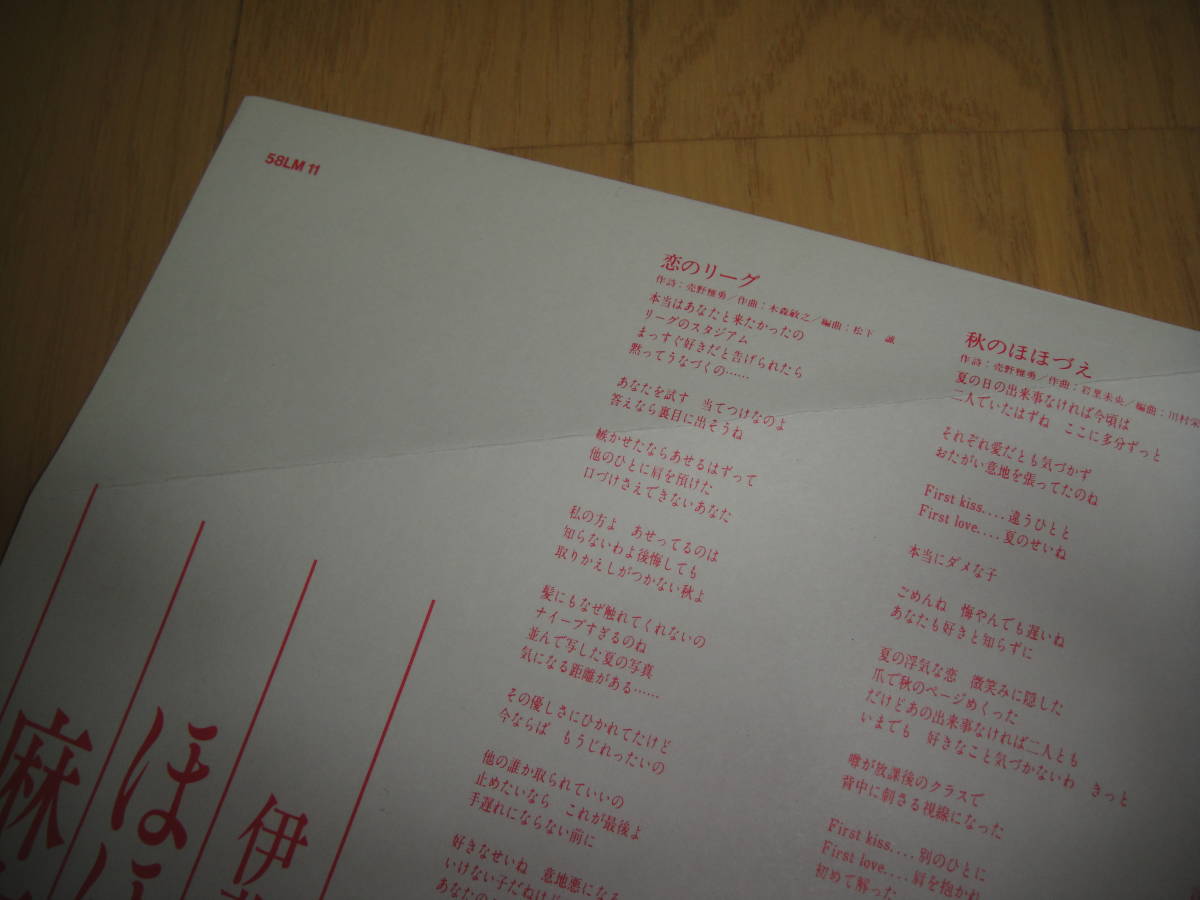 58LM 11
恋のリーグ
作詩：売野雅勇／作曲：木森敏之／編曲：松下　誠
本当はあなたと来たかったの
リーグのスタジアム
まっすぐ好きだと告げられたら
黙ってうなづくの……
あなたを試す　当てつけなのよ
答えなら裏目に出そうね
嫉かせたならあせるはずって
他のひとに肩を預けた
口づけさえできないあなた
私の方よ　あせってるのは
知らないわよ後悔しても
取りかえしがつかない秋よ
髪にもなぜ触れてくれないの
ナイーブすぎるのね
並んで写した夏の写真
気になる距離がある……
その優しさにひかれてたけど
今ならば　もうじれったいの
他の誰か取られていいの
止めたいなら　これが最後よ
手遅れにならない前に
好きなせいね　意地悪になる
いけない子だねけど
あなたの
秋のほほづえ
作詩：売野雅勇／作曲：岩里未央／編曲：川村栄
夏の日の出来事なければ今頃は
二人でいたはずね　ここに多分ずっと
それぞれ愛だとも気づかず
おたがい意地を張ってたのね
First kiss....違うひとと
First love....夏のせいね
本当にダメな子
ごめんね　悔やんでも遅いね
あなたも好きと知らずに
夏の浮気な恋　微笑みに隠した
爪で秋のページめくった
だけどあの出来事なければ二人とも
いまでも　好きなこと気づかないわ　きっと
噂が放課後のクラスで
背中に刺さる視線になった
First kiss....別のひとに
First love....肩を抱かれ
初めて解った
伊
ほほ
麻